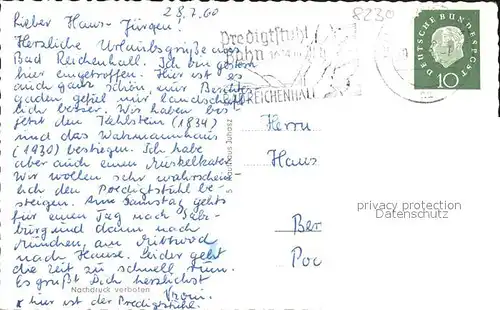 28.7.60
Lieber Hans-Jürgen!
Herzliche Urlaubsgrüße aus
Bad Reichenhall. Ich bin gestern
hier eingetroffen. Hier ist es
auch ganz schön, nur Berchtes-
gaden gefiel mir landschaft-
lich besser. Wir haben bis
jetzt den Kehlstein (1834)
und das Watzmannhaus
(1930) bestiegen. Ich habe
aber auch einen Muskelkater.
Wir wollen sehr wahrschein-
lich den Predigtstuhl be-
steigen. Am Samstag geht's
für einen Tag nach Salz-
burg und dann nach
München, am Mittwoch
nach Hause. Leider geht
die Zeit zu schnell rum.
Es grüßt Dich herzlichst
Vroni.
x hier ist der Predigtstuhl.
Nachdruck verboten
Predigtstuhl
Bahn
BAD REICHENHALL
8230
DEUTSCHE BUNDESPOST
10
Herrn
Hans
Ber
Poc
privacy protection
Datenschutz